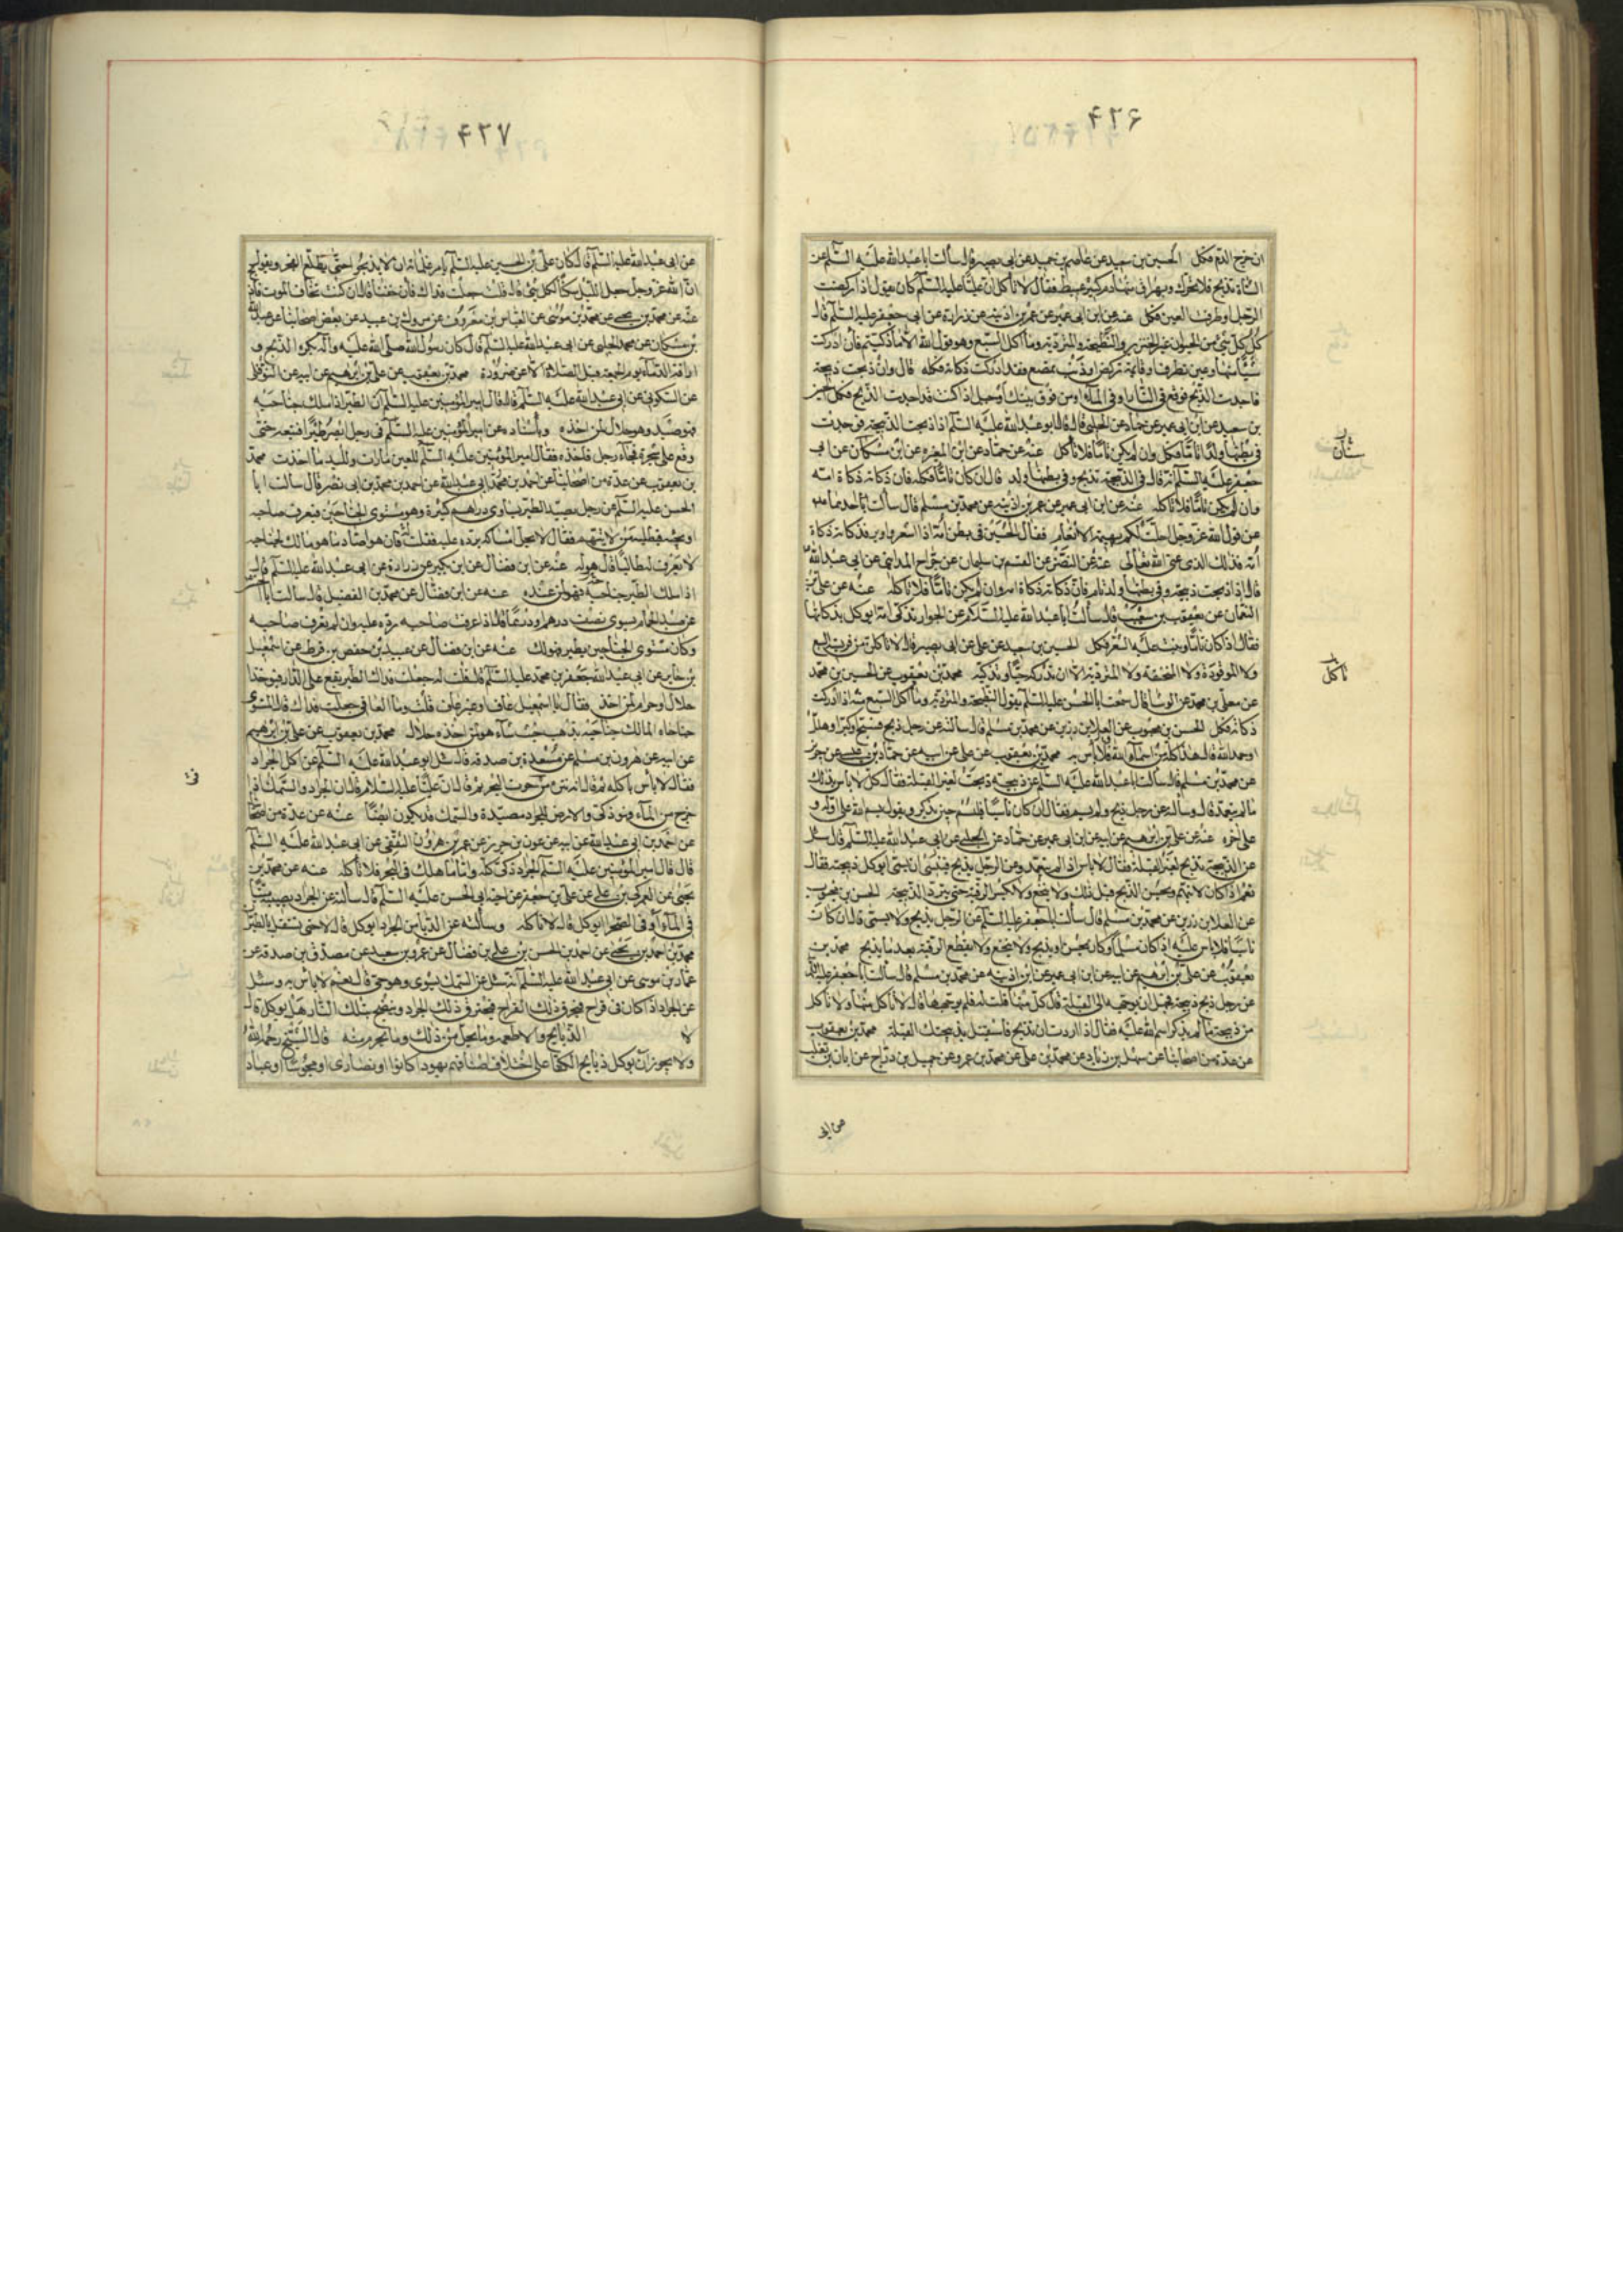 ۴۲۶
ان خرج الدم فكل الحسين بن سعيد عن عاصم بن حميد عن ابى بصير قال سألت ابا عبد الله عليه السلم عن
الشاة تذبح فلا تتحرك ويهراق منها دم كثير عبيط فقال لا تأكل ان عليا عليه السلم كان يقول اذا ركضت
الرجل او طرفت العين فكل عنه عن ابن ابى عمير عن عمر بن اذينه عن زرارة عن ابى جعفر عليه السلم قال
كل كل شئ من الحيوان غير الخنزير والنطيحة والمتردية وما أكل السبع وهو قول الله الا ما ذكيتم فان ادركت
شيئا منها وعين تطرف او قائمة تركض او ذنب يمصع فقد ادركت ذكاته فكله قال وان ذبحت ذبيحة
فاجدت الذبح فوقع فى النار او فى الماء او من فوق بيتك او جبل اذا كنت قد اجدت الذبح فكل الحسين
بن سعيد عن ابن ابى عمير عن حماد عن الحلبى قال قال ابو عبد الله عليه السلم اذا ذبحت الذبيحة فوجدت
فى بطنها ولدا تاما فكل وان لم يكن تاما فلا تأكل عنه عن حماد عن ابن المغيره عن ابن مسكان عن ابى
جعفر عليه السلم انه قال فى الذبيحة تذبح وفى بطنها ولد قال ان كان تاما فكله فان ذكاته ذكاة امه
وان لم يكن تاما فلا تأكله عنه عن ابن ابى عمير عن عمر بن اذينه عن محمد بن مسلم قال سألت احدهما
عن قول الله عز وجل احلت لكم بهيمة الانعام فقال الجنين فى بطن امه اذا اشعر واوبر فذكاته ذكاة
أمه فذلك الذى عنى الله تعالى عنه عن النضر عن القسم بن سليمان عن جراح المداينى عن ابى عبد الله
قال اذا ذبحت ذبيحة وفى بطنها ولد تام فان ذكاته ذكاة امه وان لم يكن تاما فلا تأكله عنه عن على بن
النعمان عن يعقوب بن شعيب قال سألت ابا عبد الله عليه السلم عن الحوار تذكى امه ايوكل بذكاتها
فقال اذا كان تاما ونبت عليه الشعر فكل الحسين بن سعيد عن على عن ابى بصير قال لا تأكل من فريسة السبع
ولا الموقوذة ولا المنخنقة ولا المتردية الا ان تدركه حيا وتذكيه محمد بن يعقوب عن الحسين بن محمد
عن معلى بن محمد عن الوشا قال سمعت ابا الحسن عليه السلم يقول النطيحة والمتردية وما أكل السبع اذا ادركت
ذكاته فكل الحسن بن محبوب عن العلا بن رزين عن محمد بن مسلم قال سألته عن رجل ذبح فسبح او كبر او هلل
او حمد الله قال هذا كله من اسماء الله فلا بأس به محمد بن يعقوب عن على عن ابيه عن حماد بن عيسى عن حريز
عن محمد بن مسلم قال سألت ابا عبد الله عليه السلم عن ذبيحة ذبحت لغير القبلة فقال كل لا بأس بذلك
ما لم يتعمد قال وسألته عن رجل ذبح ولم يسم فقال ان كان ناسيا فليسم حين يذكر ويقول بسم الله على اوله و
على اخره عنه عن على بن ابرهيم عن ابيه عن ابن ابى عمير عن حماد عن الحلبى عن ابى عبد الله عليه السلم قال سئل
عن الذبيحة تذبح لغير القبلة فقال لا بأس اذا لم يتعمد وعن الرجل يذبح فينسى ان يسمى ايوكل ذبيحته فقال
نعم اذا كان لا يتهم ويحسن الذبح قبل ذلك ولا ينخع ولا يكسر الرقبة حتى تبرد الذبيحة الحسن بن محبوب
عن العلا بن رزين عن محمد بن مسلم قال سألت ابا جعفر عليه السلم عن الرجل يذبح ولا يسمى قال ان كان
ناسيا فلا بأس عليه اذا كان مسلما وكان يحسن ان يذبح ولا ينخع ولا يقطع الرقبة بعد ما يذبح محمد بن
يعقوب عن على بن ابرهيم عن ابيه عن ابن ابى عمير عن ابن اذينه عن محمد بن مسلم قال سألت ابا جعفر عليه السلم
عن رجل ذبح ذبيحة فجهل ان يوجهها الى القبلة قال كل منها قلت له فلم يوجهها قال لا تأكل منها ولا تأكل
من ذبيحة ما لم يذكر اسم الله عليه فقال اذا اردت ان تذبح فاستقبل بذبيحتك القبلة محمد بن يعقوب
عن عدة من اصحابنا عن سهل بن زياد عن محمد بن على عن محمد بن عمرو عن جميل بن دراج عن ابان بن تغلب
تأكل
عن ابى
۴۲۷
عن ابى عبد الله عليه السلم قال كان على بن الحسين عليه السلم يامر غلمانه ان لا يذبحوا حتى يطلع الفجر ويقول
ان الله عز وجل جعل الليل سكنا لكل شئ قال قلت جعلت فداك فان خفنا قال ان كنت تخاف الموت فاذبح
عنه عن محمد بن يحيى عن محمد بن موسى عن العباس بن معروف عن مروك بن عبيد عن بعض اصحابنا عن عبد الله
بن مسكان عن محمد الحلبى عن ابى عبد الله عليه السلم قال كان رسول الله صلى الله عليه وآله يكره الذبح و
اراقة الدماء يوم الجمعة قبل الصلاة الا عن ضرورة محمد بن يعقوب عن على بن ابرهيم عن ابيه عن النوفلى
عن السكونى عن ابى عبد الله عليه السلم قال قال امير المؤمنين عليه السلم ان الطير اذا ملك جناحيه
فهو صيد وهو حلال لمن اخذه وباسناده عن امير المؤمنين عليه السلم فى رجل ابصر طيرا فتبعه حتى
وقع على شجرة فجاء رجل فاخذه فقال امير المؤمنين عليه السلم للعين ما رأت ولليد ما اخذت محمد
بن يعقوب عن عدة من اصحابنا عن احمد بن محمد بن ابى عبد الله عن احمد بن محمد بن ابى نصر قال سالت ابا
الحسن عليه السلم عن رجل يصيد الطير يساوى دراهم كثيرة وهو مستوى الجناحين فيعرف صاحبه
او يجيئه فيطلبه من لا يتهمه فقال لا يحل امساكه يرده عليه فقلت له فان هو صاد ما هو مالك لجناحيه
لا يعرف له طالبا قال هو له عنه عن ابن فضال عن ابن بكير عن زرارة عن ابى عبد الله عليه السلم قال
اذا ملك الطير جناحيه فهو لمن اخذه عنه عن ابن فضال عن محمد بن الفضيل قال سالت ابا الحسن
عن صيد الحمام يسوى نصف درهم او درهما قال اذا عرفت صاحبه رده عليه وان لم يعرف صاحبه
وكان مستوى الجناحين يطير فهو لك عنه عن ابن فضال عن عبيد بن حفص بن قرط عن اسمعيل
بن جابر عن ابى عبد الله جعفر بن محمد عليه السلم قال قلت له جعلت فداك الطير يقع على الدار فيوخذ
حلال او حرام لمن اخذ فقال يا اسمعيل عاف او غير عاف قلت وما العافى جعلت فداك قال المستوى
جناحاه المالك جناحيه يذهب حيث شاء هو لمن اخذه حلال محمد بن يعقوب عن على بن ابرهيم
عن ابيه عن هرون بن مسلم عن مسعدة بن صدقه قال سئل ابو عبد الله عليه السلم عن اكل الجراد
فقال لا بأس باكله ثم قال انه نثره من حوت البحر ثم قال ان عليا عليه السلام قال ان الجراد والسمك اذا
خرج من الماء فهو ذكى والارض للجراد مصيدة والسمك قد يكون ايضا عنه عن عدة من اصحابنا
عن احمد بن ابى عبد الله عن ابيه عن عون بن جرير عن عمرو بن هرون الثقفى عن ابى عبد الله عليه السلم
قال قال امير المؤمنين عليه السلم الجراد ذكى كله واما ما هلك فى البحر فلا تأكله عنه عن محمد بن
يحيى عن العمركى بن على عن على بن جعفر عن اخيه ابى الحسن عليه السلم قال سألته عن الجراد يصيبه ميتا
فى الماء او فى الصحرا ايوكل قال لا تأكله وسألته عن الدبا من الجراد ايوكل قال لا حتى يستقل بالطيران
محمد بن احمد بن يحيى عن احمد بن الحسن بن على بن فضال عن عمرو بن سعيد عن مصدق بن صدقه عن
عمار بن موسى عن ابى عبد الله عليه السلم انه سئل عن السمك يشوى وهو حى قال نعم لا بأس به وسئل
عن الجراد اذا كان فى قراح فيحرق ذلك القراح فيحترق ذلك الجراد وينضج بتلك النار هل يوكل قال
لا الذبايح والاطعمه وما يحل من ذلك وما يحرم منه قال الشيخ رحمه الله
ولا يجوز ان يوكل ذبايح الكفار على اختلاف اصنافهم يهودا كانوا او نصارى او مجوسا او عباد